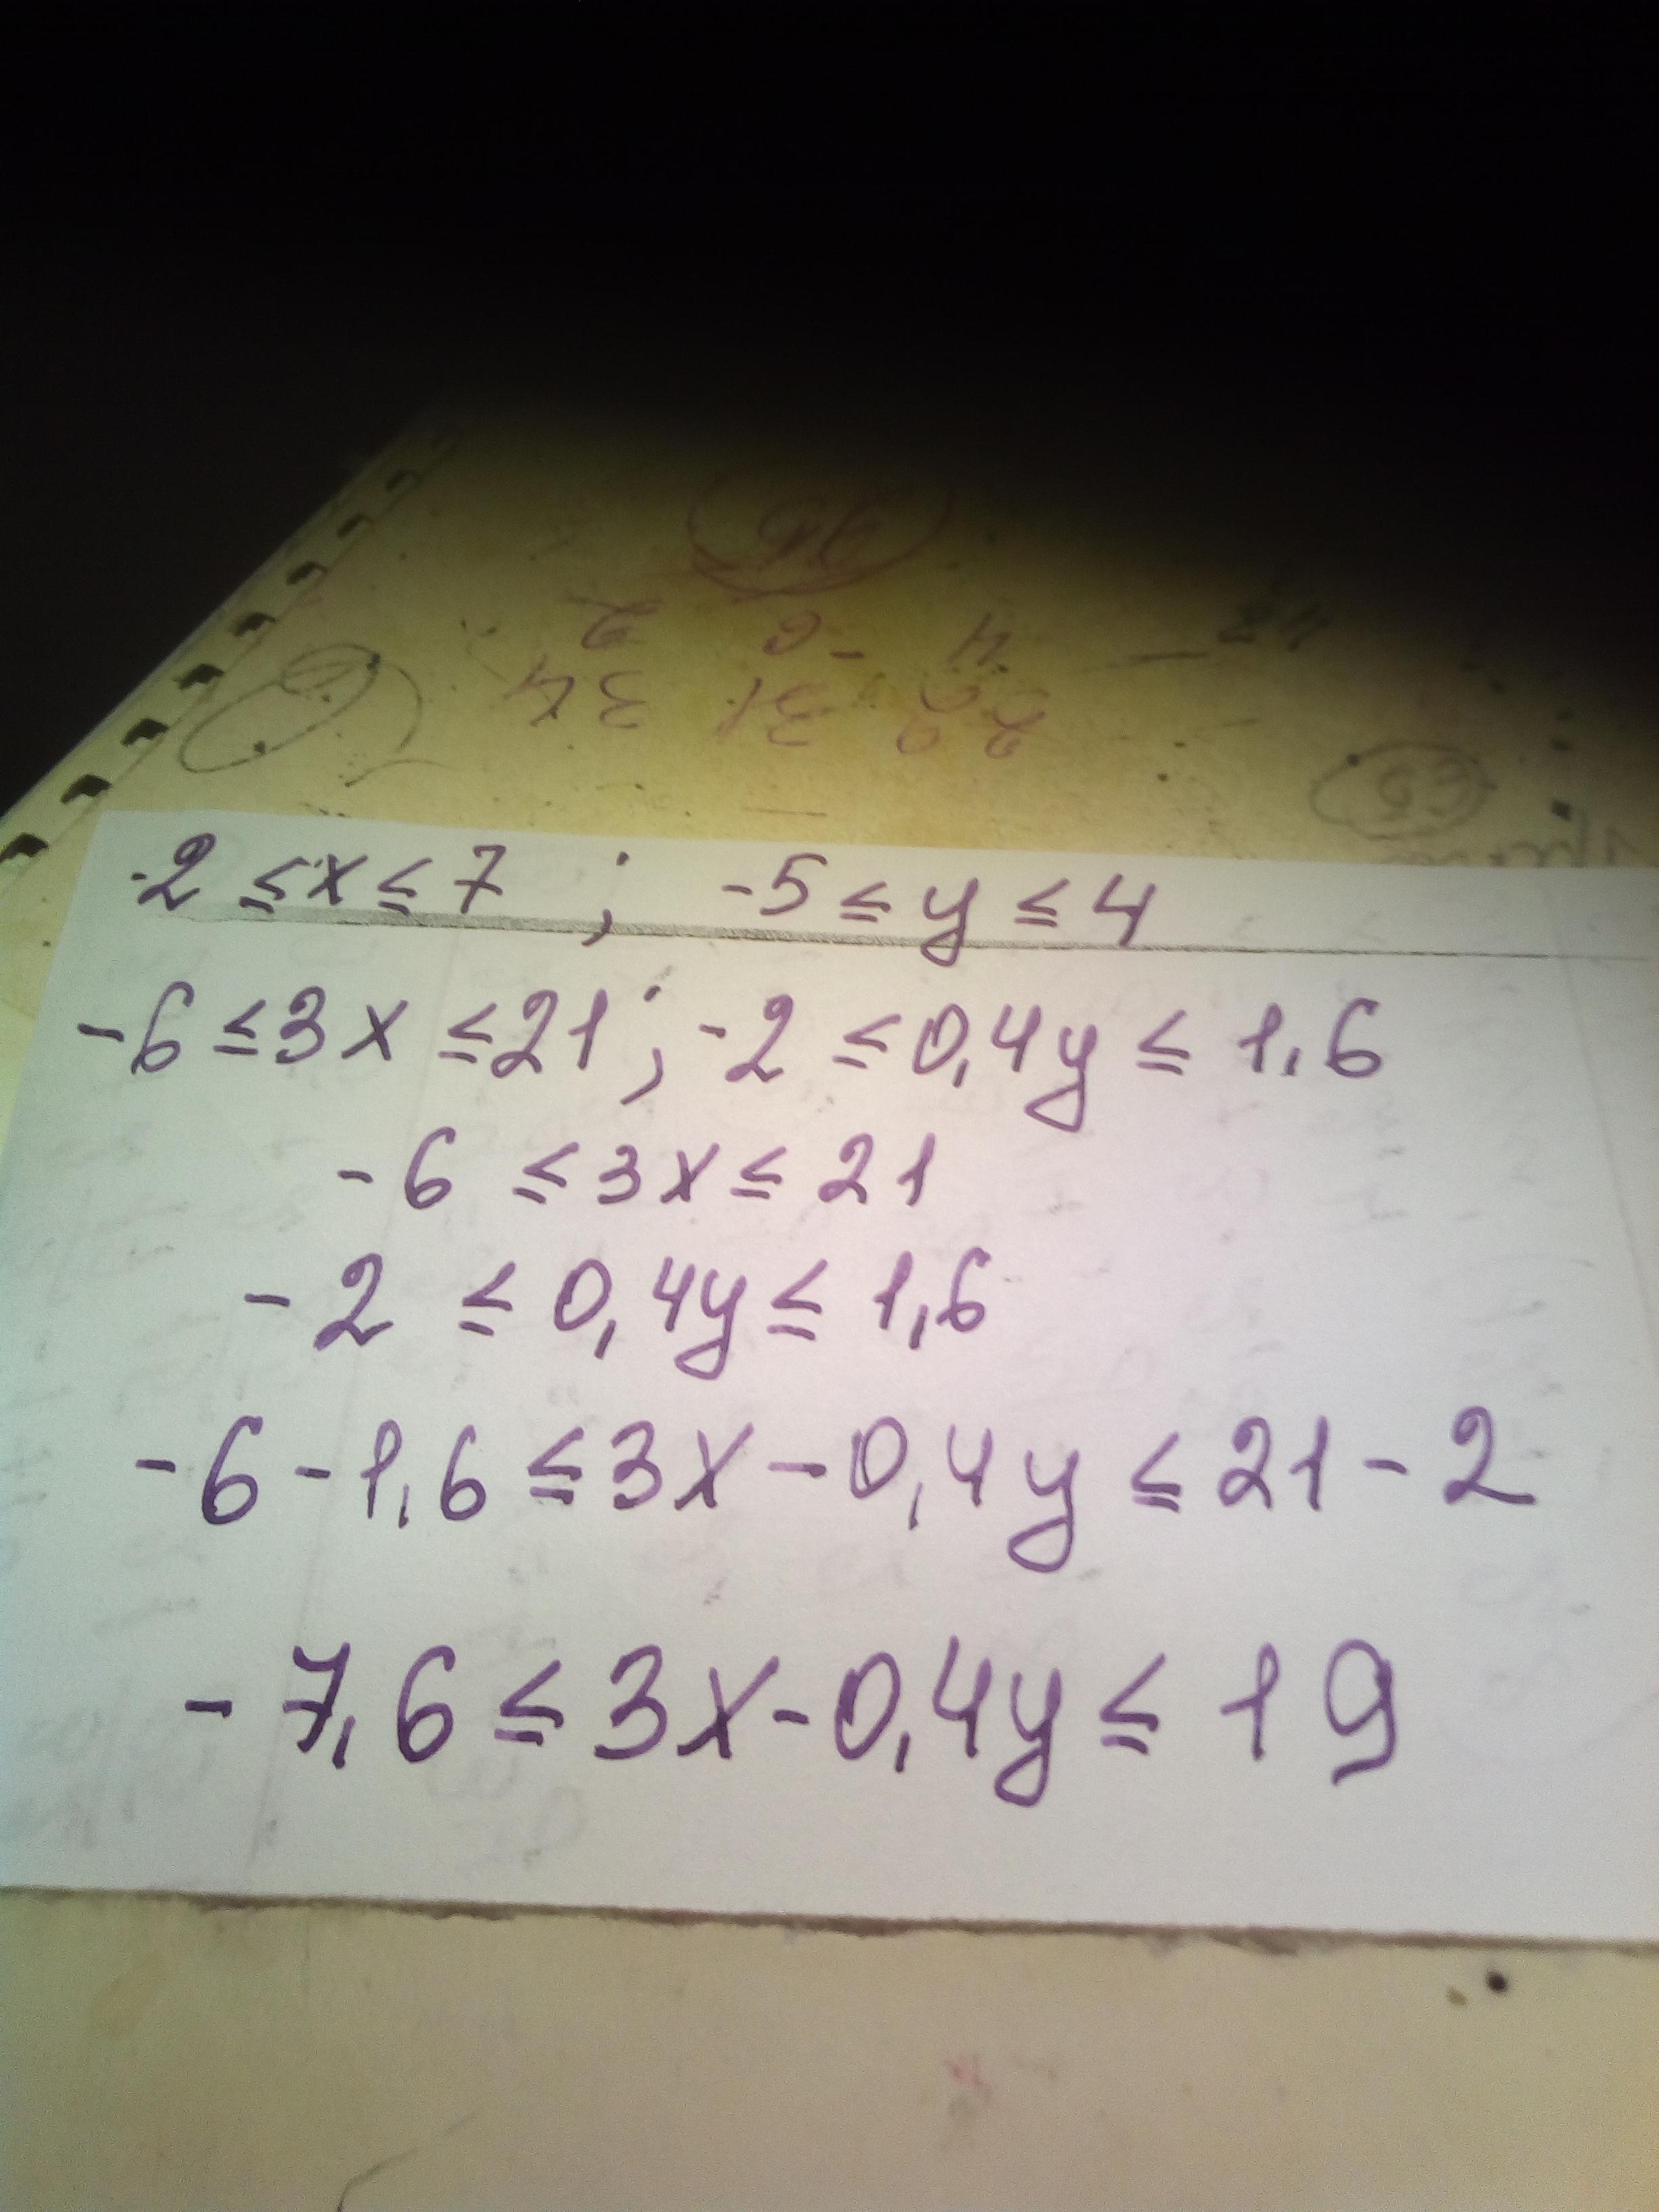 -2 ≤ x ≤ 7 ; -5 ≤ y ≤ 4
-6 ≤ 3x ≤ 21 ; -2 ≤ 0,4y ≤ 1,6
-6 ≤ 3x ≤ 21
-2 ≤ 0,4y ≤ 1,6
-6 - 1,6 ≤ 3x - 0,4y ≤ 21 - 2
-7,6 ≤ 3x - 0,4y ≤ 19